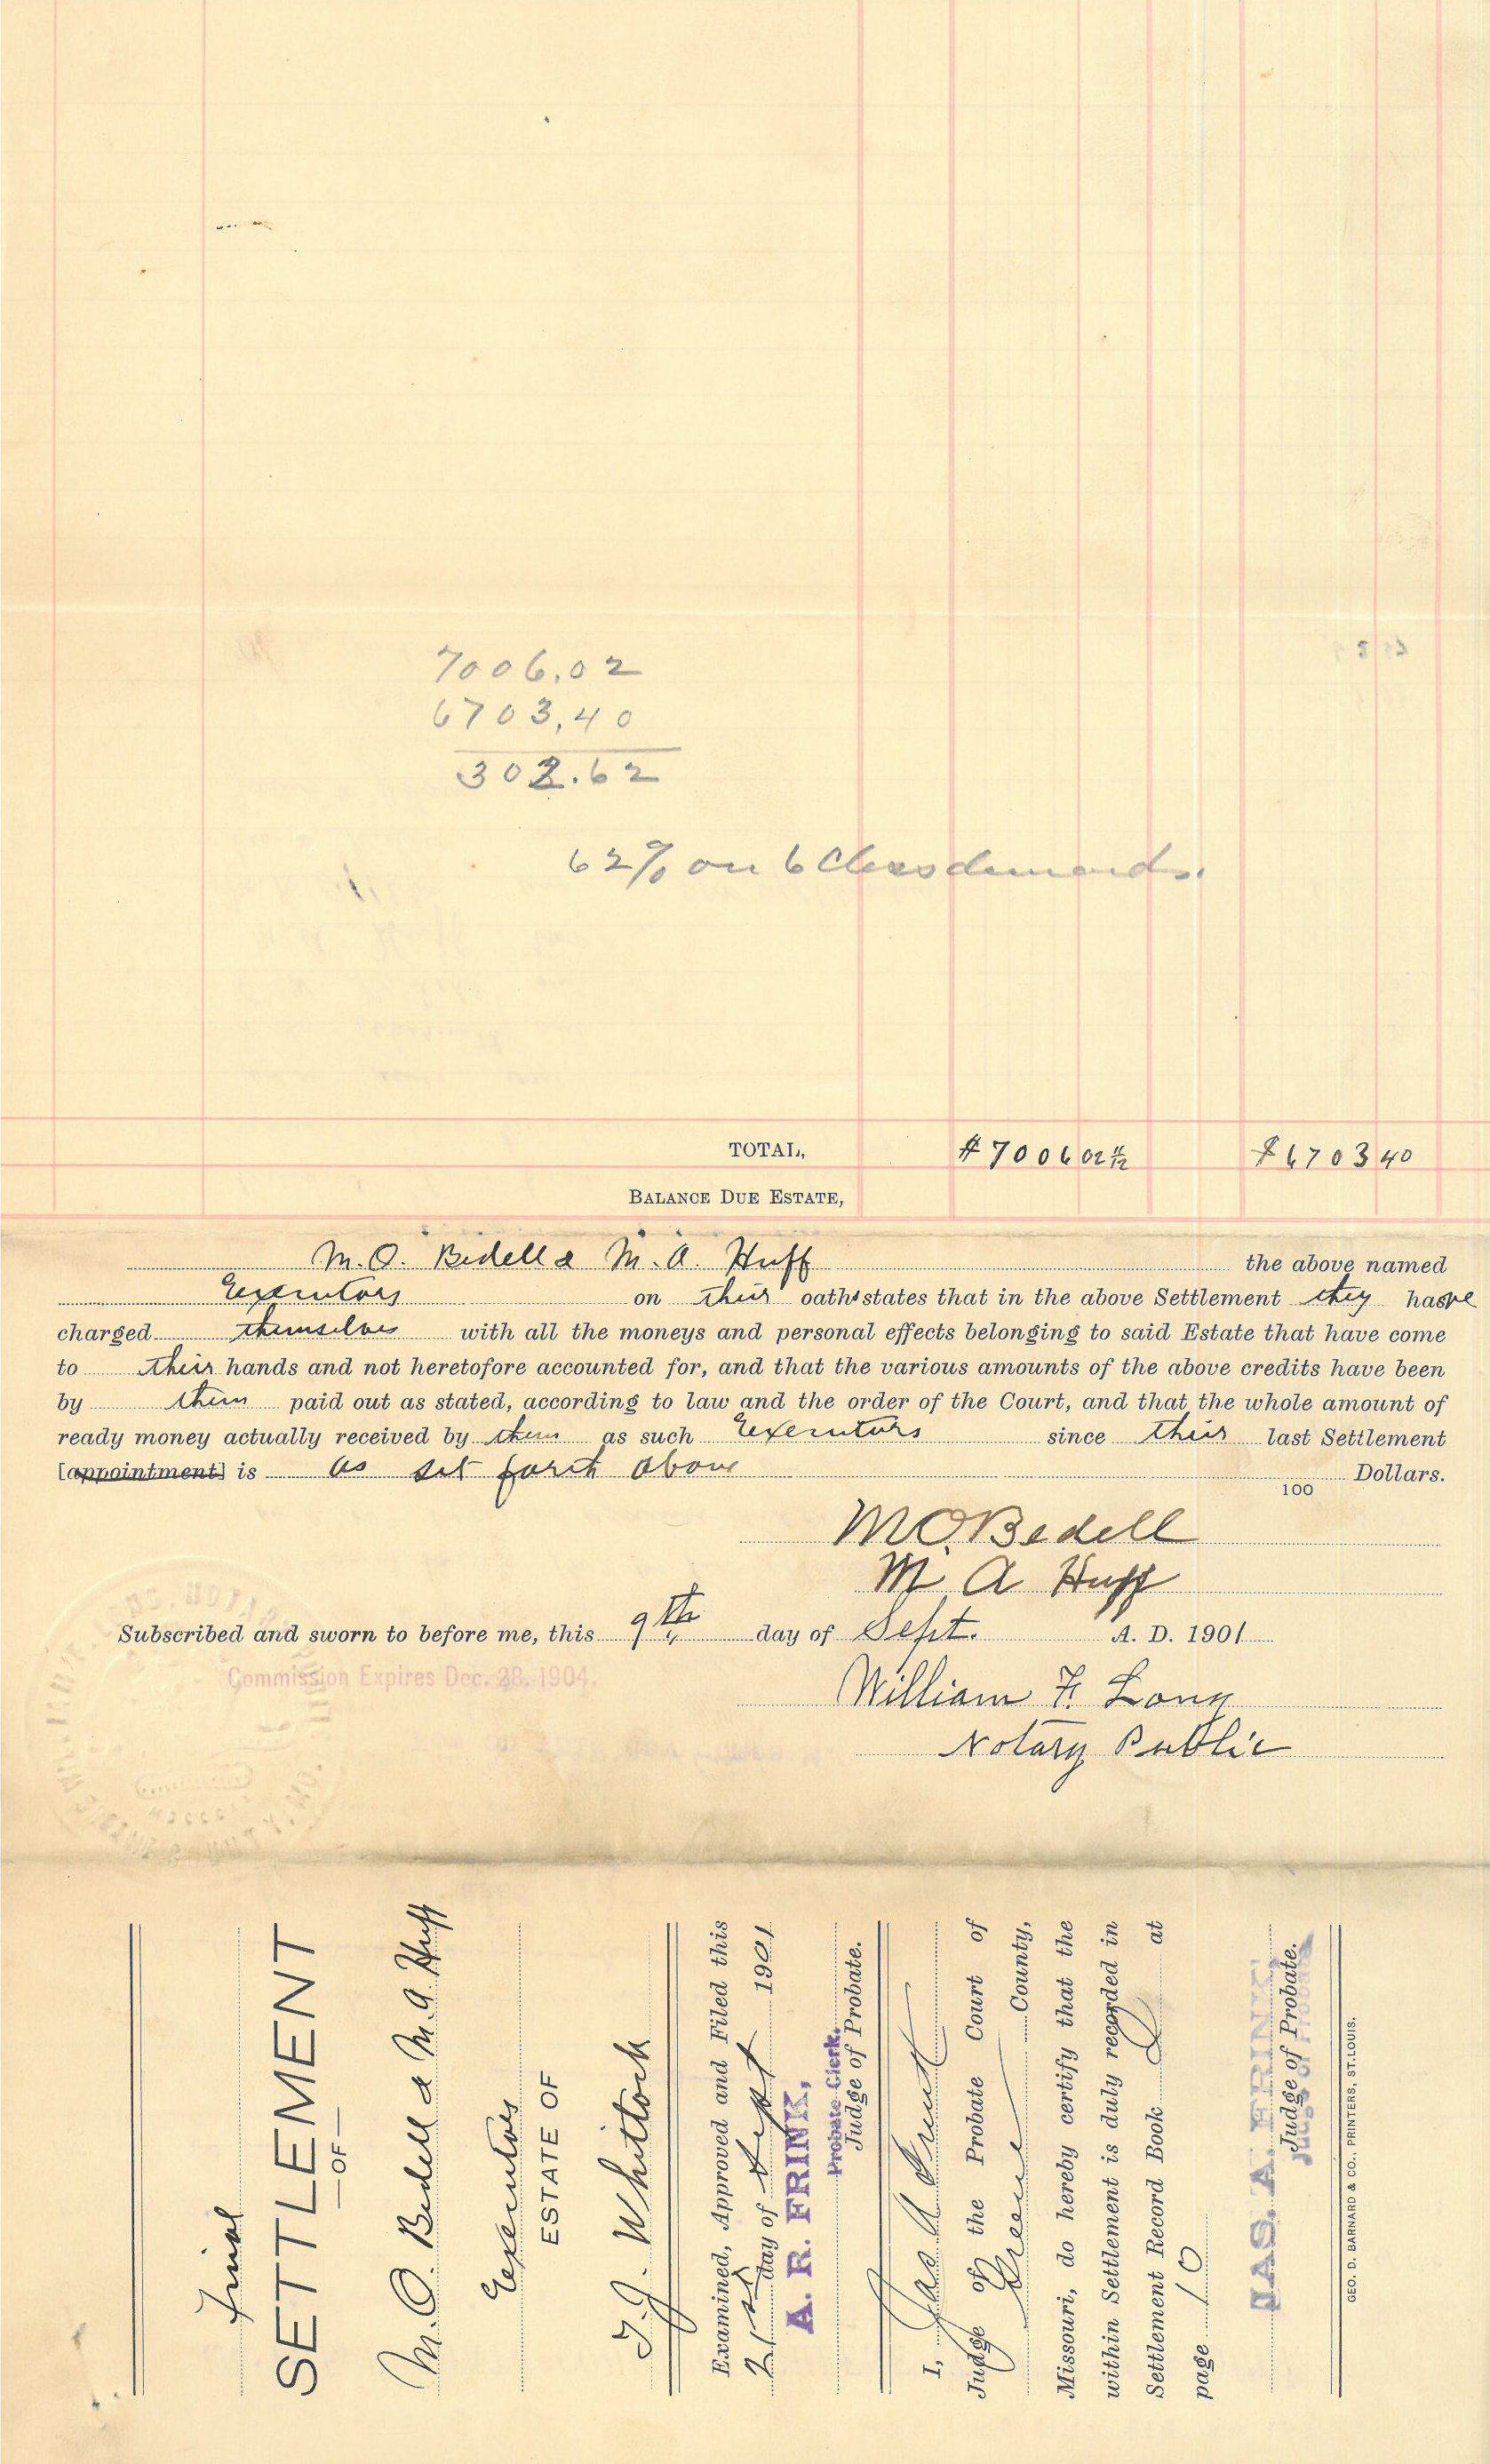 7006.02
6703.40
302.62
62% on 6 Class demands.
TOTAL, $7006 02 11/12 $6703 40
BALANCE DUE ESTATE,
M. O. Bedell & M. A. Huff the above named
Executors on their oaths states that in the above Settlement they have
charged themselves with all the moneys and personal effects belonging to said Estate that have come
to their hands and not heretofore accounted for, and that the various amounts of the above credits have been
by them paid out as stated, according to law and the order of the Court, and that the whole amount of
ready money actually received by them as such Executors since their last Settlement
[appointment] is as set forth above Dollars.
100
M. O. Bedell
M A Huff
Subscribed and sworn to before me, this 9th day of Sept. A. D. 1901
Commission Expires Dec. 28. 1904.
William F. Long
Notary Public
Final
SETTLEMENT
—OF—
M. O. Bedell & M. A. Huff
Executors
ESTATE OF
T. J. Whitlock
Examined, Approved and Filed this
21st day of Sept 1901
A. R. FRINK,
Probate Clerk.
Judge of Probate.
I, Jas A Frink
Judge of the Probate Court of
Greene County,
Missouri, do hereby certify that the
within Settlement is duly recorded in
Settlement Record Book at
page 10
JAS. A. FRINK,
Judge of Probate.
Judge of Probate
GEO. D. BARNARD & CO., PRINTERS, ST. LOUIS.